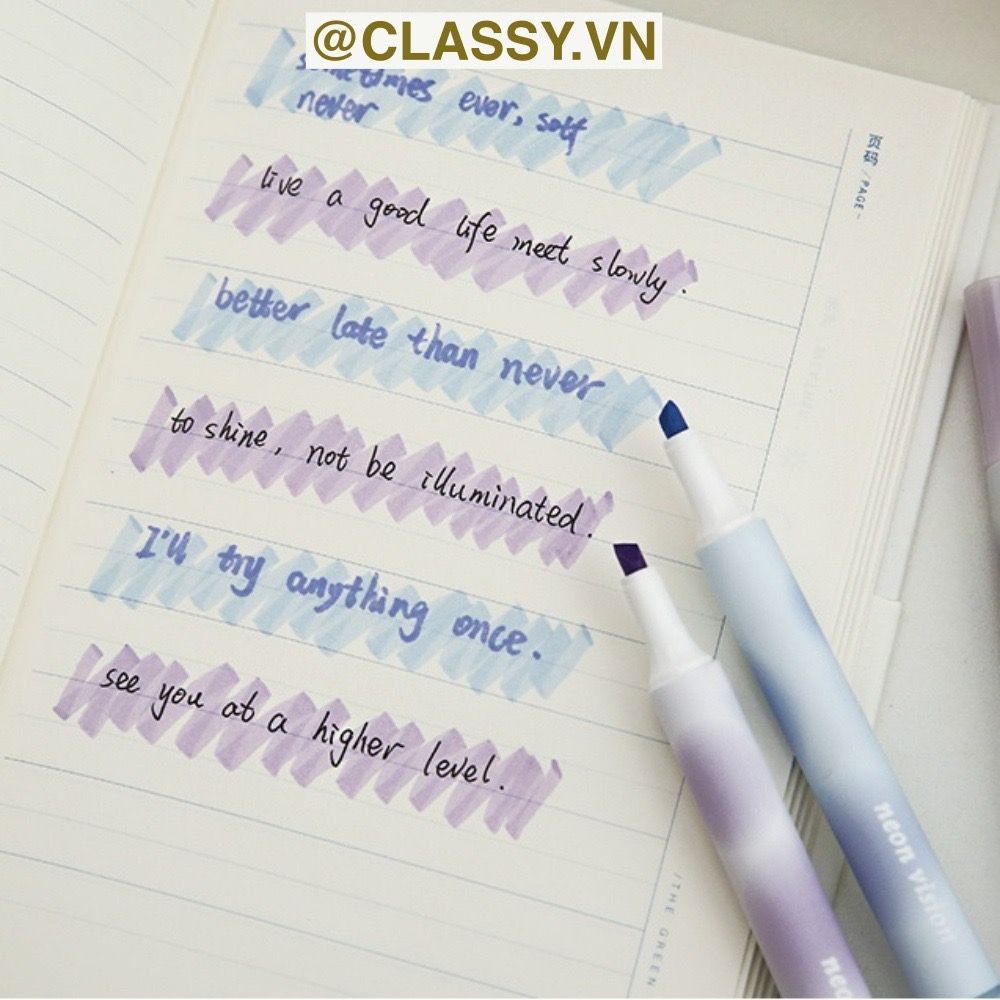 @CLASSY.VN
sometimes ever, soft
never
live a good life meet slowly.
better late than never
to shine, not be illuminated.
I'll try anything once.
see you at a higher level.
页码 / PAGE -
/THE GREEN
neon vision
neo